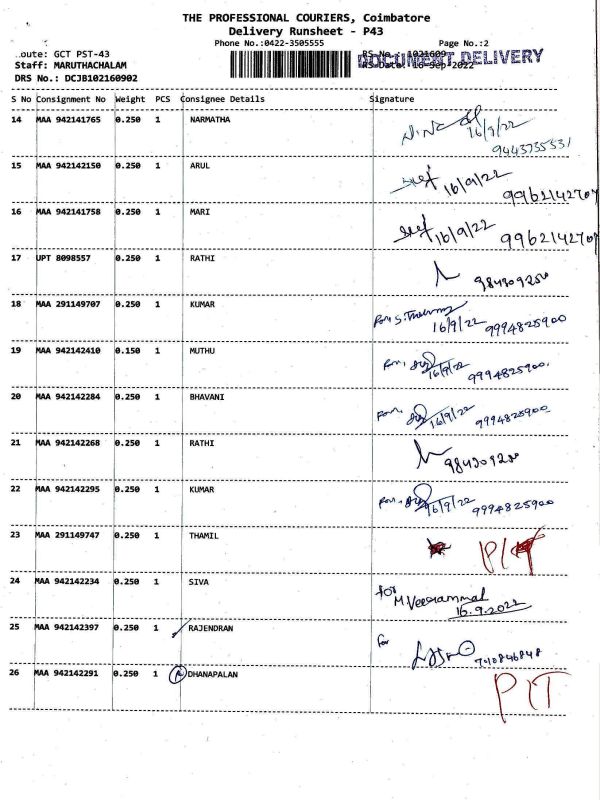 THE PROFESSIONAL COURIERS, Coimbatore
Delivery Runsheet - P43
Phone No.:0422-3505555 Page No.:2
oute: GCT PST-43 RS No.: 1021609 DOCUMENT DELIVERY
Staff: MARUTHACHALAM RS Date: 16-Sep-2022
DRS No.: DCJB102160902
S No Consignment No Weight PCS Consignee Details Signature
14 MAA 942141765 0.250 1 NARMATHA 16/9/22
9443735531
15 MAA 942142150 0.250 1 ARUL 16/9/22
9962142707
16 MAA 942141758 0.250 1 MARI 16/9/22 9962142707
17 UPT 8098557 0.250 1 RATHI
18 MAA 291149707 0.250 1 KUMAR
16/9/22 9994825900
19 MAA 942142410 0.150 1 MUTHU 16/9/22 9994825900
20 MAA 942142284 0.250 1 BHAVANI 16/9/22 9994825900
21 MAA 942142268 0.250 1 RATHI
22 MAA 942142295 0.250 1 KUMAR 16/9/22 9994825900
23 MAA 291149747 0.250 1 THAMIL P/T
24 MAA 942142234 0.250 1 SIVA for M Veerammal
16.9.2022
25 MAA 942142397 0.250 1 RAJENDRAN for
7010846848
26 MAA 942142291 0.250 1 DHANAPALAN P/T